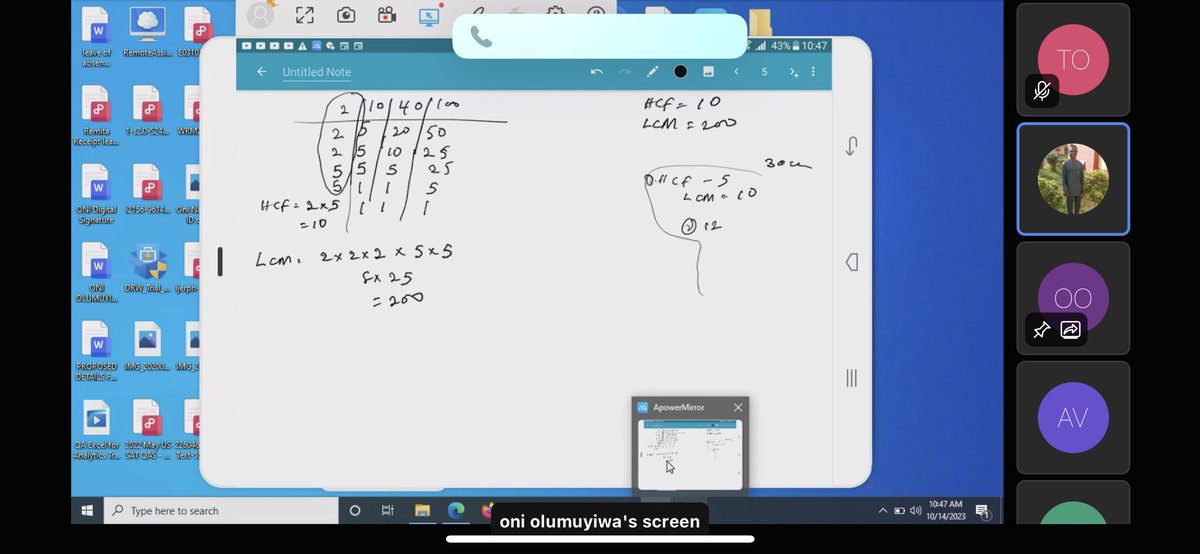 leave of absen...
RemoteAssi...
E0310
Remita Receipt lea...
1-s2.0-S24...
WRM
ONI Digital Signature
i2156-9614...
Oni N
ID c
ONI OLUMUYI...
DRW_Trial_...
ijerph-
PROPOSED DETAILS F...
IMG_20200...
IMG_2
QA Excel for Analytics Tr...
2022 May US SAT QAS - ...
226046
Text-S
43% 10:47
Untitled Note
5
2 10 40 100
2 5 20 50
2 5 10 25
5 5 5 25
5 1 1 5
HCF = 2x5 1 1 1
= 10
LCM = 2x2x2 x 5x5
8x 25
= 200
HCF = 10
LCM = 200
30
① HCF - 5
LCM = 10
② 12
ApowerMirror
Type here to search
10:47 AM
10/14/2023
1
oni olumuyiwa's screen
TO
OO
AV